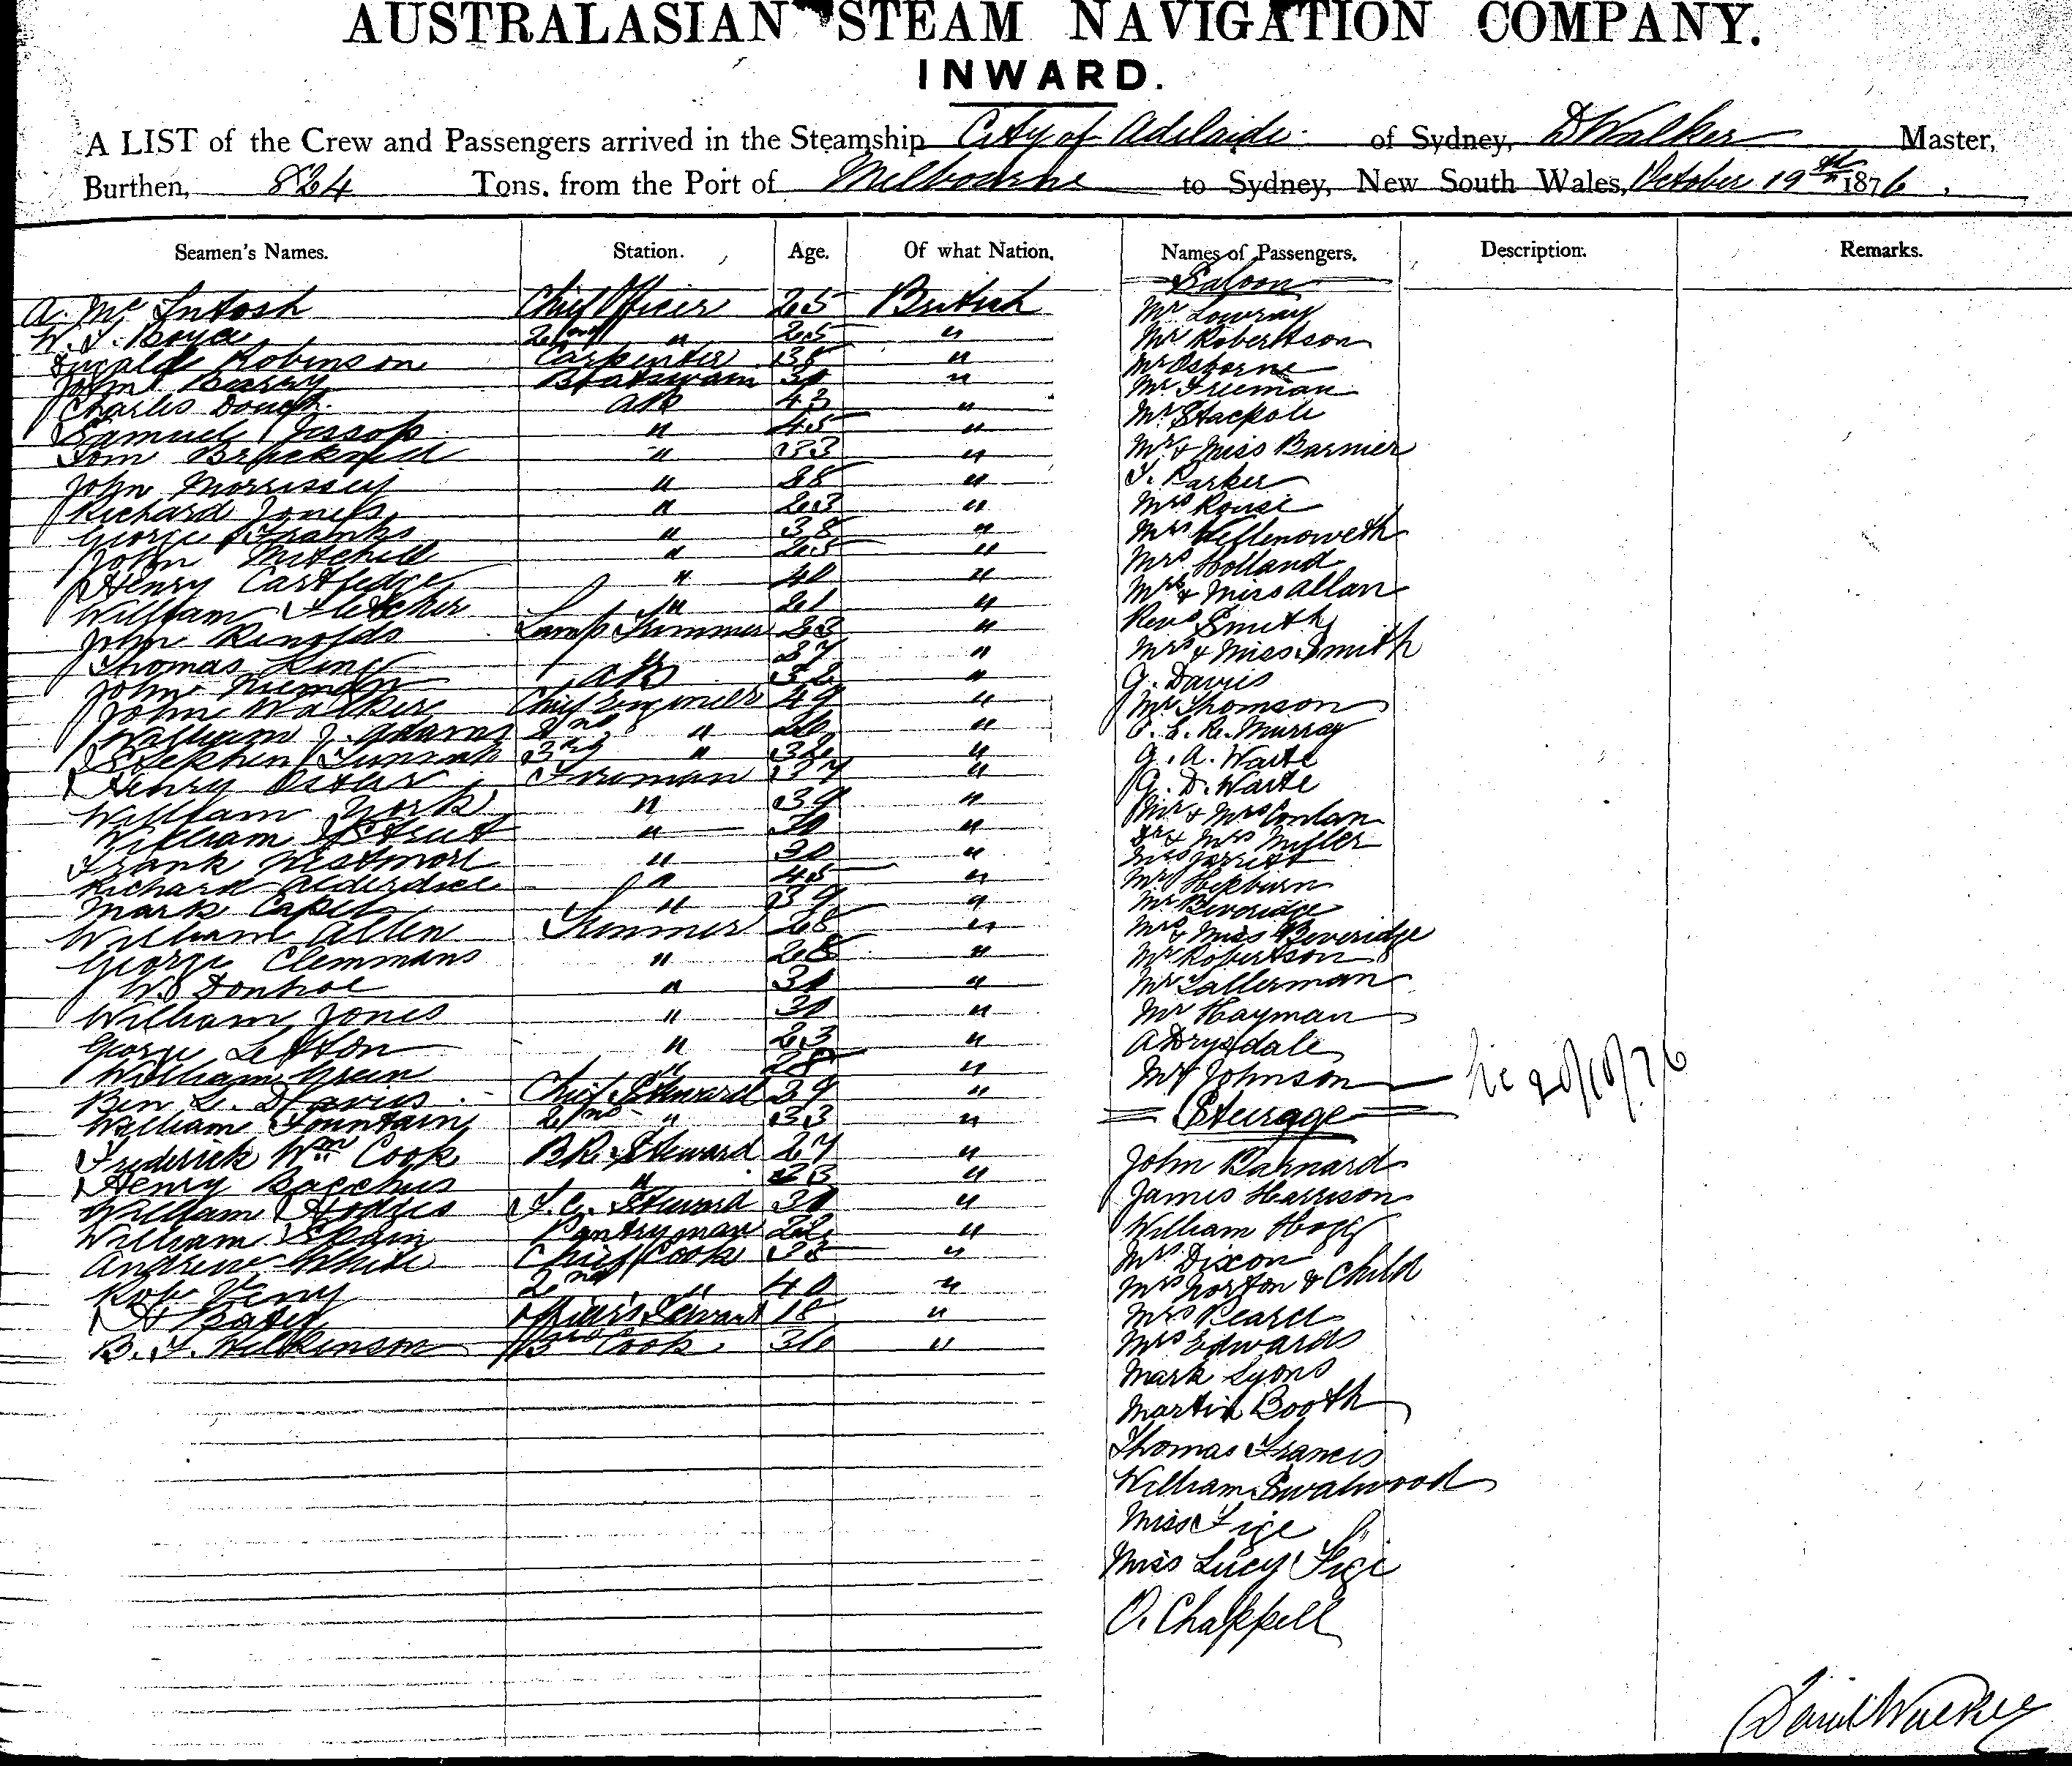 AUSTRALASIAN STEAM NAVIGATION COMPANY.
INWARD.
A LIST of the Crew and Passengers arrived in the Steamship City of Adelaide of Sydney, D Walker Master,
Burthen, 824 Tons, from the Port of Melbourne to Sydney, New South Wales, October 19th 1876.
Seamen's Names. Station. Age. Of what Nation. Names of Passengers. Description. Remarks.
Saloon
A. Mc Intosh Chief Officer 25 British Mr Lowray
W. J. Boyce 2nd " 25 " Mr Robertson
Robinson Carpenter 38 " Mr Osborne
John Barry Boatswain 30 " Mr Freeman
Charles AB 43 " Mr Stackpole
Samuel Jessop " 45 " Mr & Miss Barnier
Tom " 33 " T. Parker
John Morrissey " " Mrs Rouse
Richard Jones " 23 " Mrs
George Franks " 38 " Mrs Holland
John Mitchell " 25 " Mrs & Miss Allan
Henry Cartledge " 40 " Revd Smith
William Fletcher " 21 " Mrs & Miss Smith
John Renolds Lamp Trimmer 23 " G. Davis
Thomas King " 37 " Mr Thomson
John AB 32 " C. E. R. Murray
John Walker Chief Engineer 49 " G. A. Waite
William J. Adams 2nd " 26 " G. D. Waite
Stephen 3rd " 32 " Mr & Mrs Conlan
Henry Fireman 37 " Dr & Mrs Miller
William York " 39 " Jarrett
William Strutt " 30 " Mr Hepburn
Frank Westmore " 30 " Mr Beveridge
Richard Alderdice " 45 " Mrs & Miss Beveridge
Mark Capel " 39 " Mr Robertson
William Allen Trimmer 28 " Mr Lallerman
George Clemmans " 28 " Mr Hayman
W. Donhoe " 30 " A Drysdale
William Jones " 30 " Mr Johnson
20/10/76
George " 23 " Steerage
William Green " 28 " John Barnard
Ben L. Davies Chief Steward 29 " James Harrison
William Fountain 2nd " 33 " William Hogg
Frederick Wm Cook BR. Steward 27 " Mrs Dixon
Henry Bacchus " 23 " Mrs Norton & Child
William Hodges F.C. Steward 30 " Mrs Pearce
William Spain Pantryman 22 " Mrs Edwards
Andrew White Chief Cook 38 " Mark Lyons
Rob. 2nd " 40 " Martin Booth
H Bates Officer's Servant 18 " Thomas Francis
B. F. Wilkinson 3rd Cook 36 " William Swalwood
Miss Fige
Miss Lucy Fige
O. Chappell
David Walker